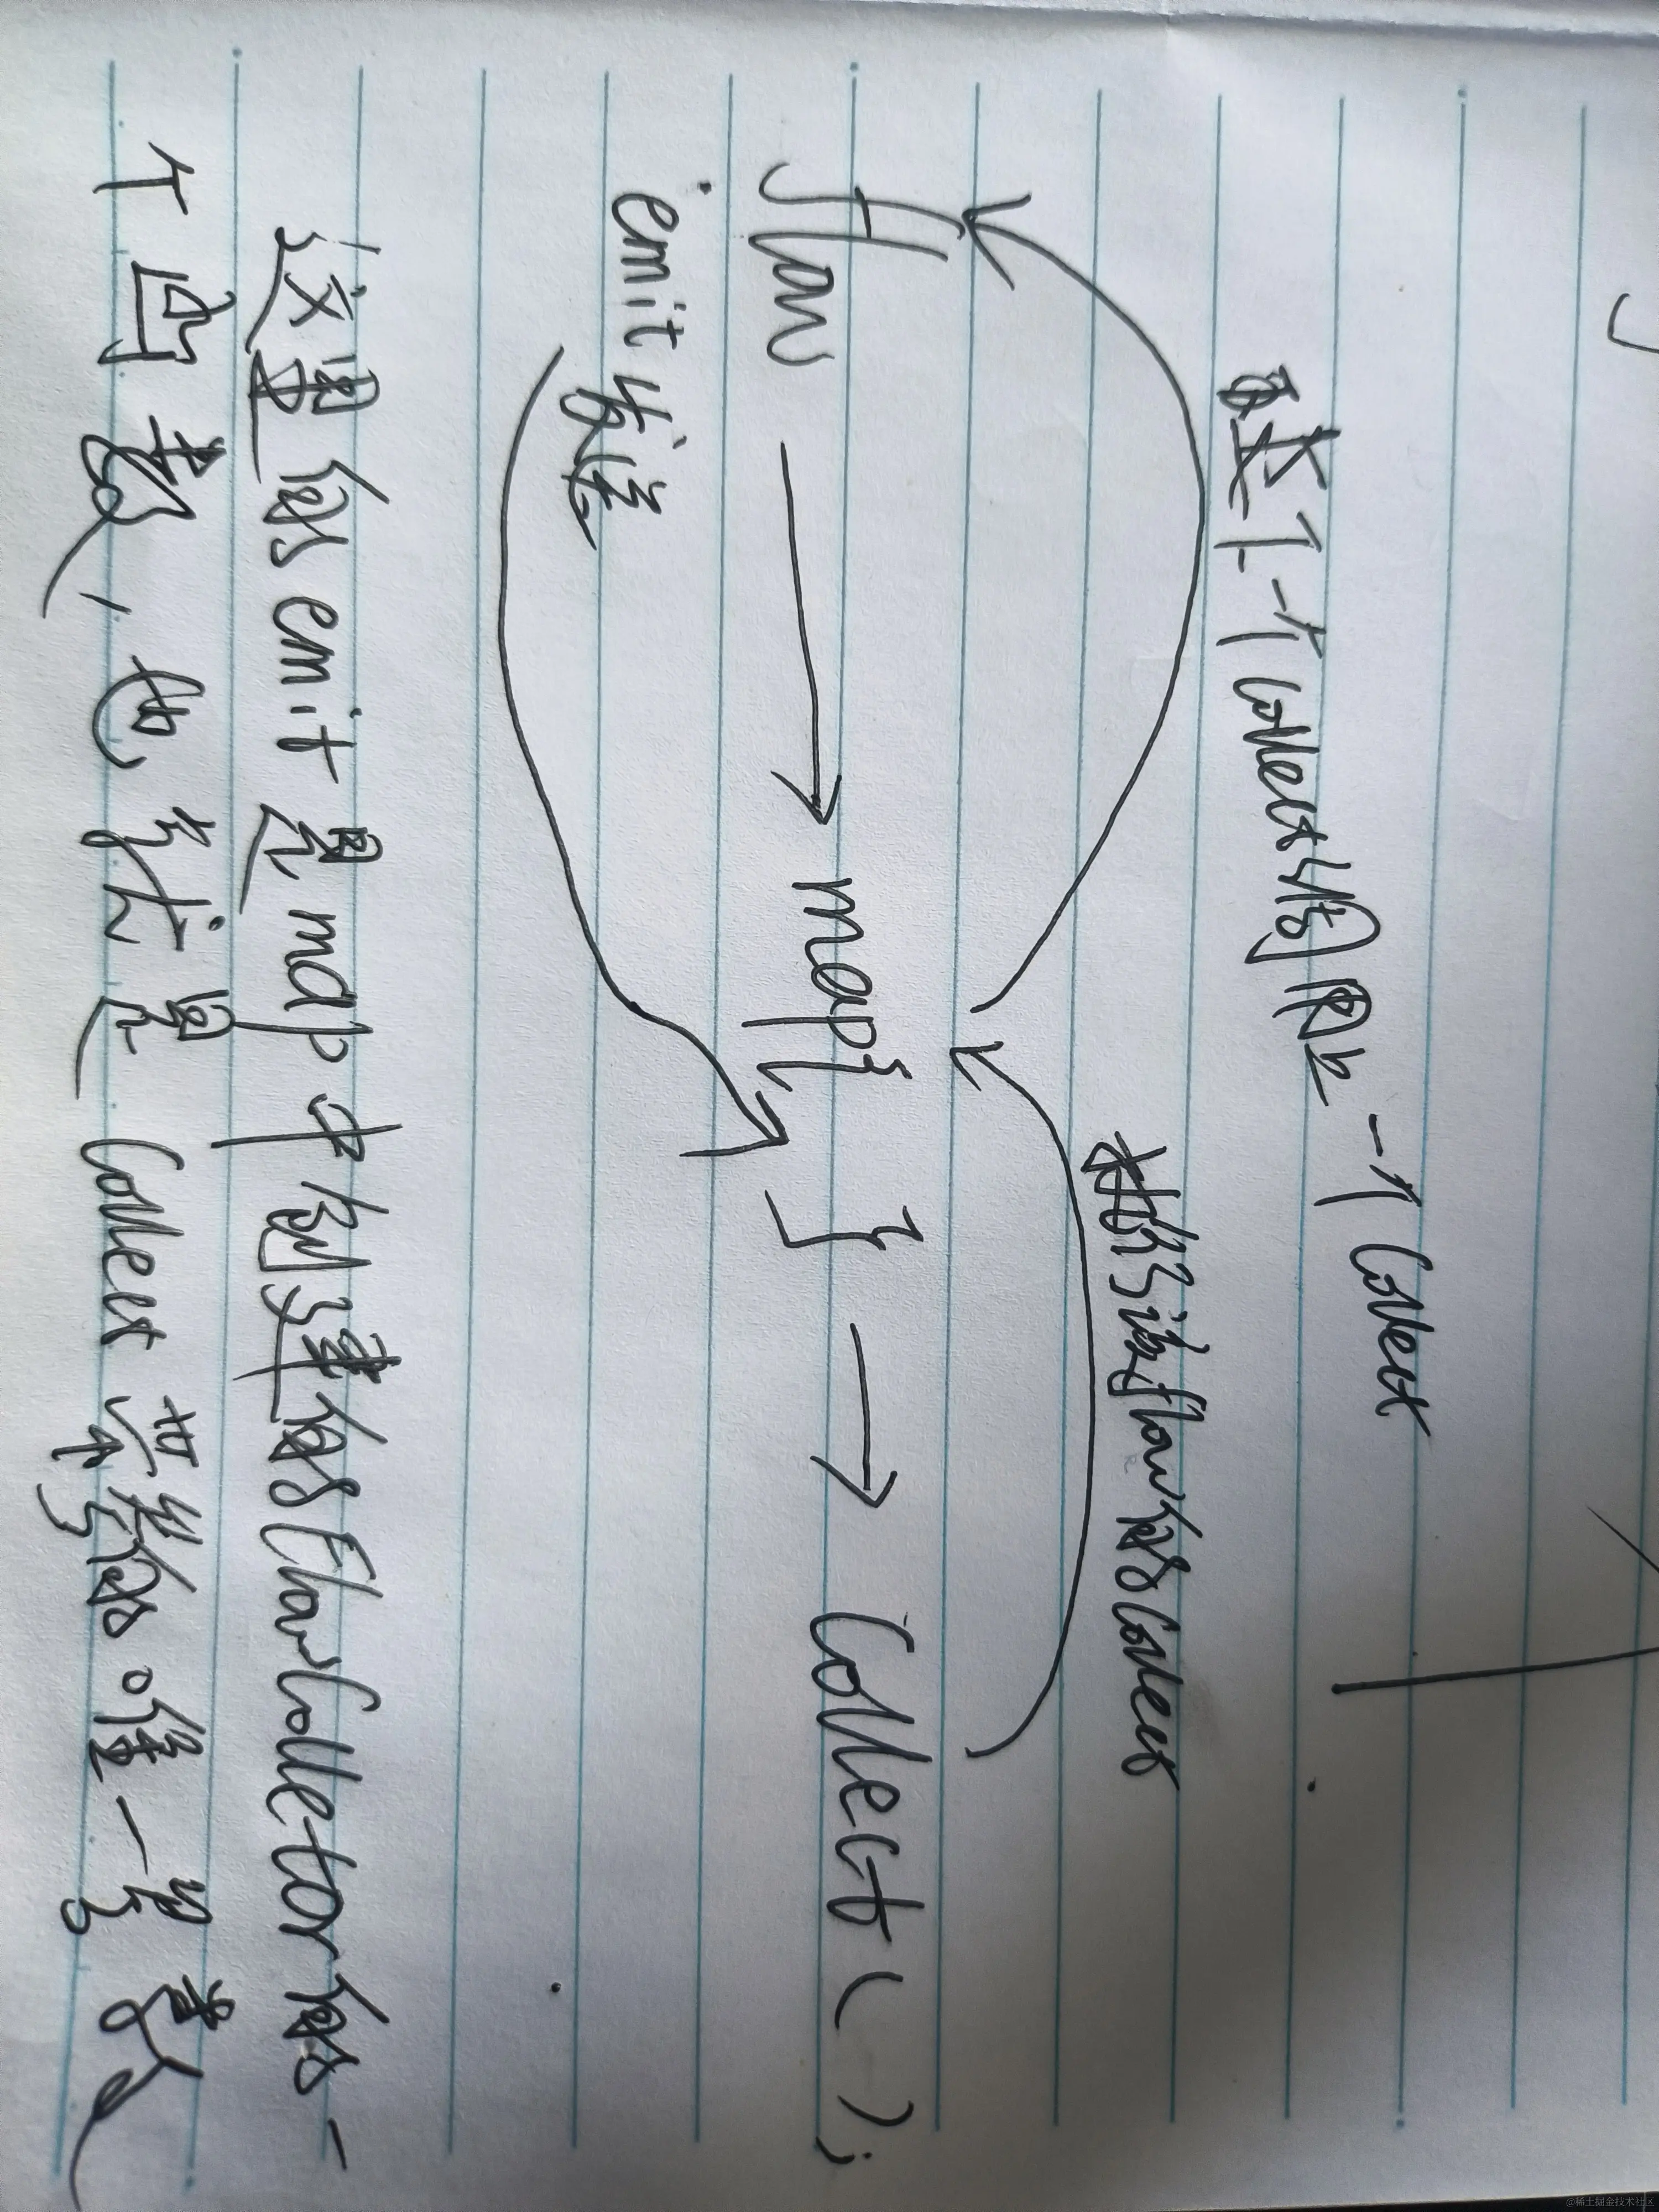 下一个Collect调用上一个Collect
执行该flow的Collect
flow → map{ } → Collect();
emit发送
这里的emit是map中创建的FlowCollector的一
个函数，他就是Collect需要的唯一参数
@稀土掘金技术社区